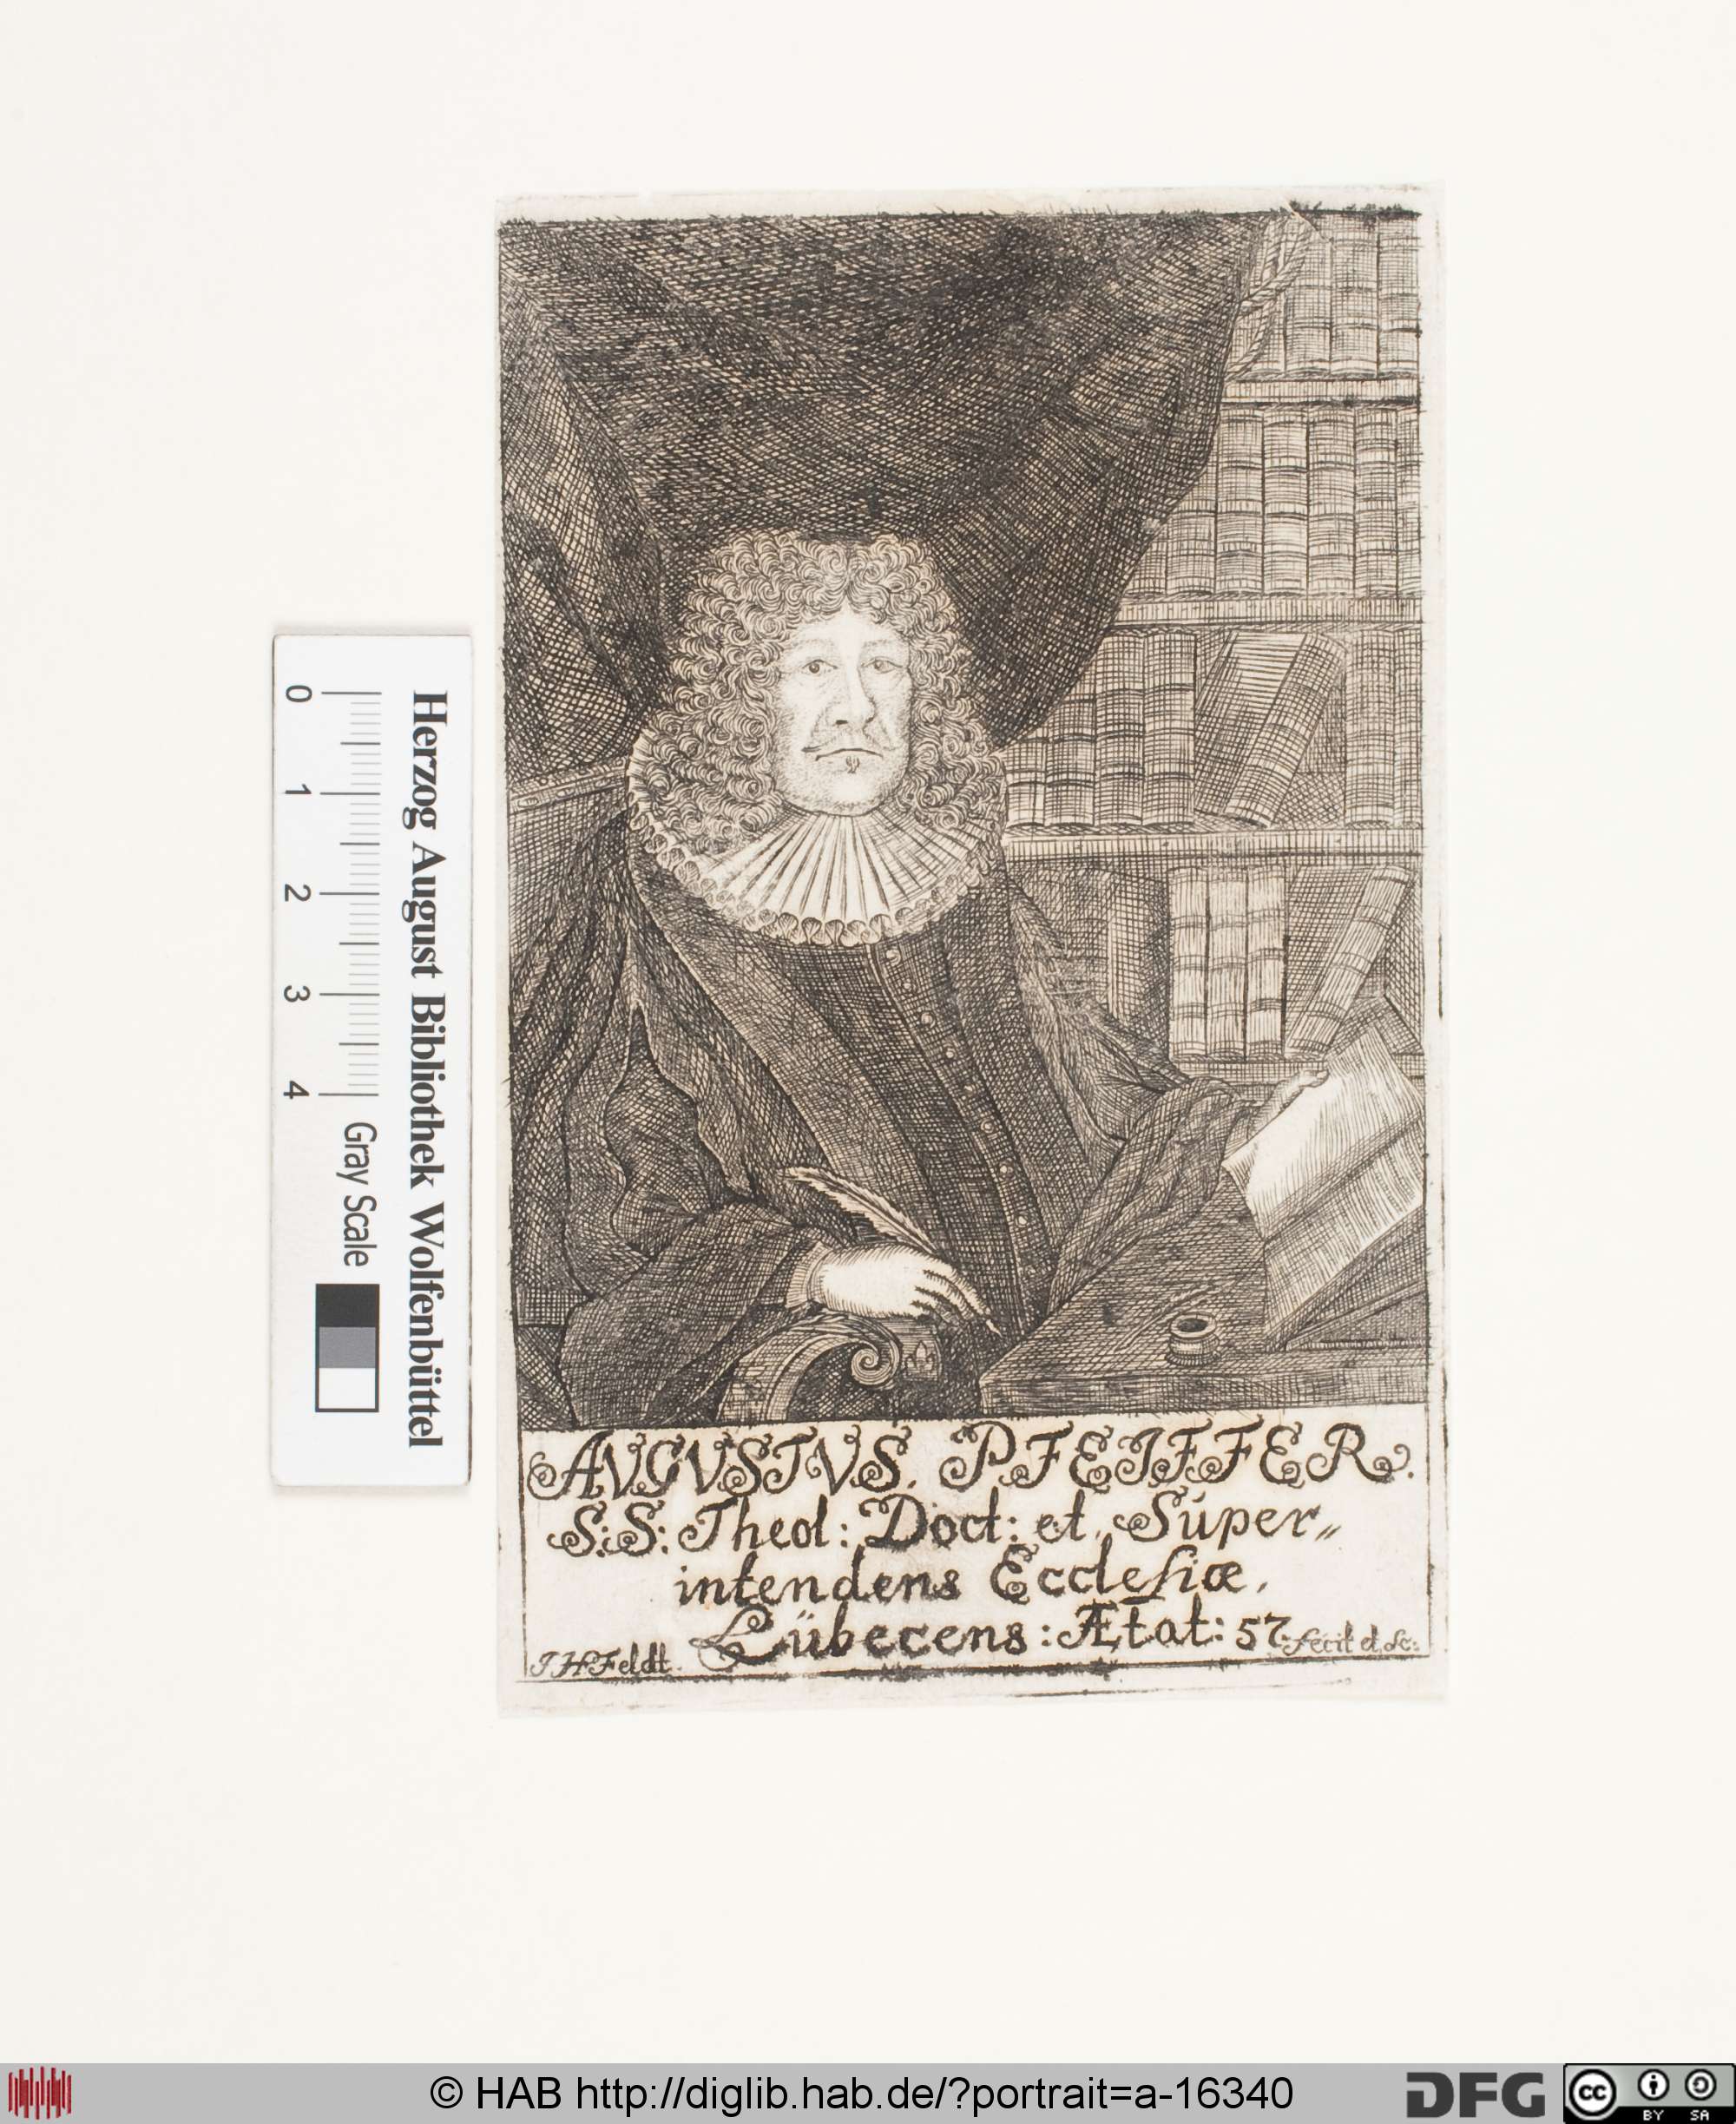 AVGVSTVS. PFEIFFER.
S: S: Theol: Doct: et. Súper„
intendens Ecclesiæ,
Lúbecens: Ætat: 57.
JHFeldt. fecit et sc:
Herzog August Bibliothek Wolfenbüttel
0 1 2 3 4 Gray Scale
© HAB http://diglib.hab.de/?portrait=a-16340
DFG
cc BY SA